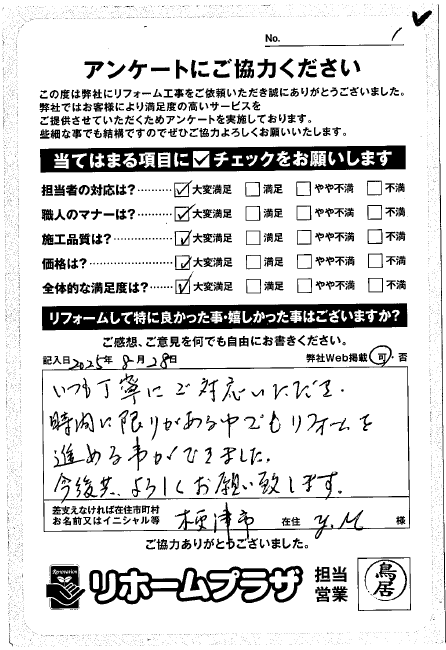 No. 1
アンケートにご協力ください
この度は弊社にリフォーム工事をご依頼いただき誠にありがとうございました。
弊社ではお客様により満足度の高いサービスを
ご提供させていただくためアンケートを実施しております。
些細な事でも結構ですのでぜひご協力よろしくお願いいたします。
当てはまる項目に☑チェックをお願いします
担当者の対応は?………☑大変満足 □満足 □やや不満 □不満
職人のマナーは?………☑大変満足 □満足 □やや不満 □不満
施工品質は?……………☑大変満足 □満足 □やや不満 □不満
価格は?…………………☑大変満足 □満足 □やや不満 □不満
全体的な満足度は?……☑大変満足 □満足 □やや不満 □不満
リフォームして特に良かった事・嬉しかった事はございますか?
ご感想、ご意見を何でも自由にお書きください。
記入日 2025年 8月 28日 弊社Web掲載 可・否
いつも丁寧にご対応いただき、
時間に限りがある中でもリフォームを
進める事ができました。
今後共、よろしくお願い致します。
差支えなければ在住市町村
お名前又はイニシャル等 木更津市 在住 y.M 様
ご協力ありがとうございました。
Renovation
リホームプラザ 担当
営業 鳥居